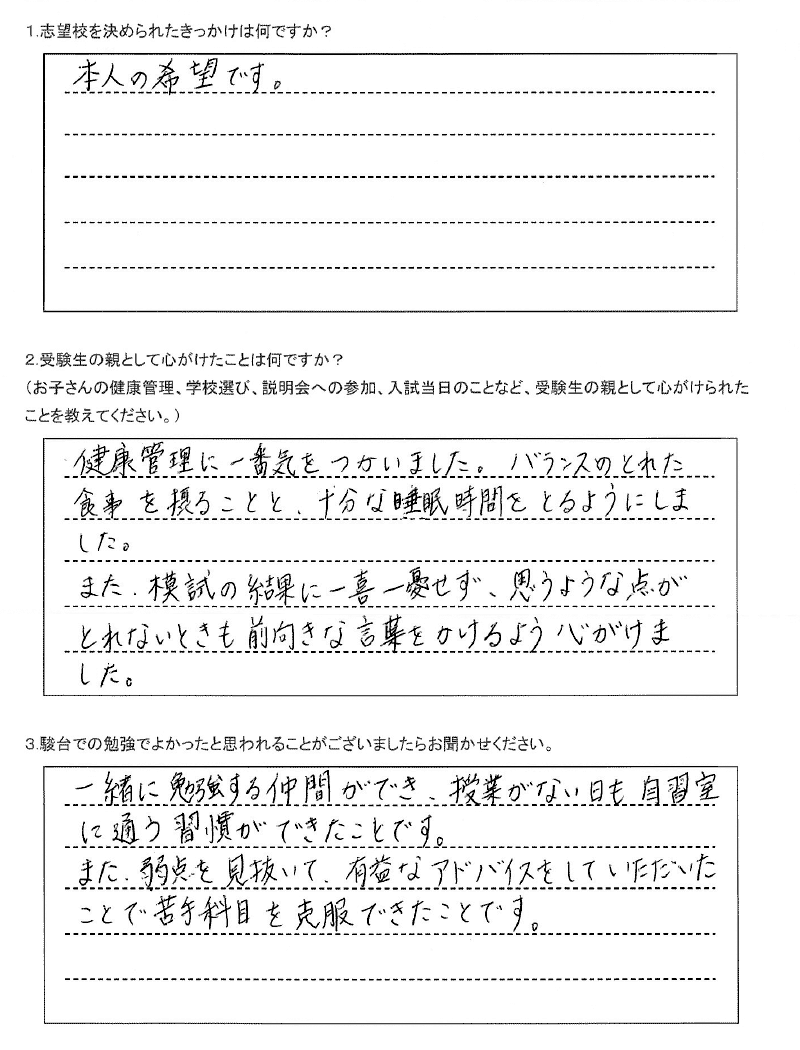 1.志望校を決められたきっかけは何ですか？
本人の希望です。
2.受験生の親として心がけたことは何ですか？
（お子さんの健康管理、学校選び、説明会への参加、入試当日のことなど、受験生の親として心がけられた
ことを教えてください。）
健康管理に一番気をつかいました。バランスのとれた
食事を摂ることと、十分な睡眠時間をとるようにしま
した。
また、模試の結果に一喜一憂せず、思うような点が
とれないときも前向きな言葉をかけるよう心がけま
した。
3.駿台での勉強でよかったと思われることがございましたらお聞かせください。
一緒に勉強する仲間ができ、授業がない日も自習室
に通う習慣ができたことです。
また、弱点を見抜いて、有益なアドバイスをしていただいた
ことで苦手科目を克服できたことです。